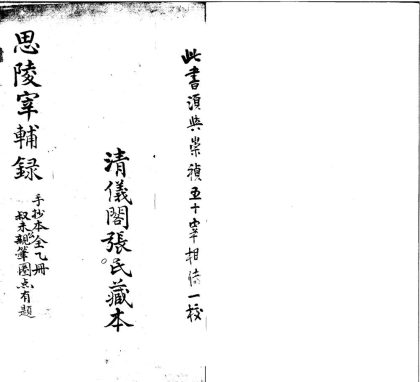 此書須與崇禎五十宰相傳一校
清儀閣張氏藏本
思陵宰輔録
手抄本全乙冊
叔未親筆圈点有題